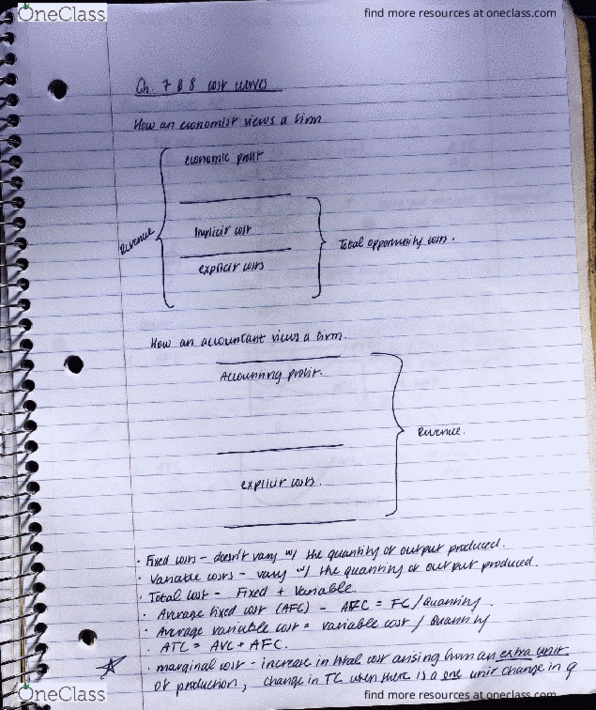 OneClass
find more resources at oneclass.com
Ch. 7 & 8 cost curves
How an economist views a firm
economic profit
Revenue
Implicit cost
Total opportunity costs.
explicit costs
How an accountant views a firm.
Accounting profit.
Revenue.
explicit costs.
· Fixed costs - doesn't vary w/ the quantity of output produced.
· Variable costs - vary w/ the quantity of output produced.
· Total cost - Fixed + Variable.
· Average fixed cost (AFC) - AFC = FC / Quantity.
· Average variable cost = variable cost / Quantity
· ATC = AVC + AFC.
· marginal cost - increase in total cost arising from an extra unit
of production, change in TC when there is a one unit change in q
OneClass
find more resources at oneclass.com